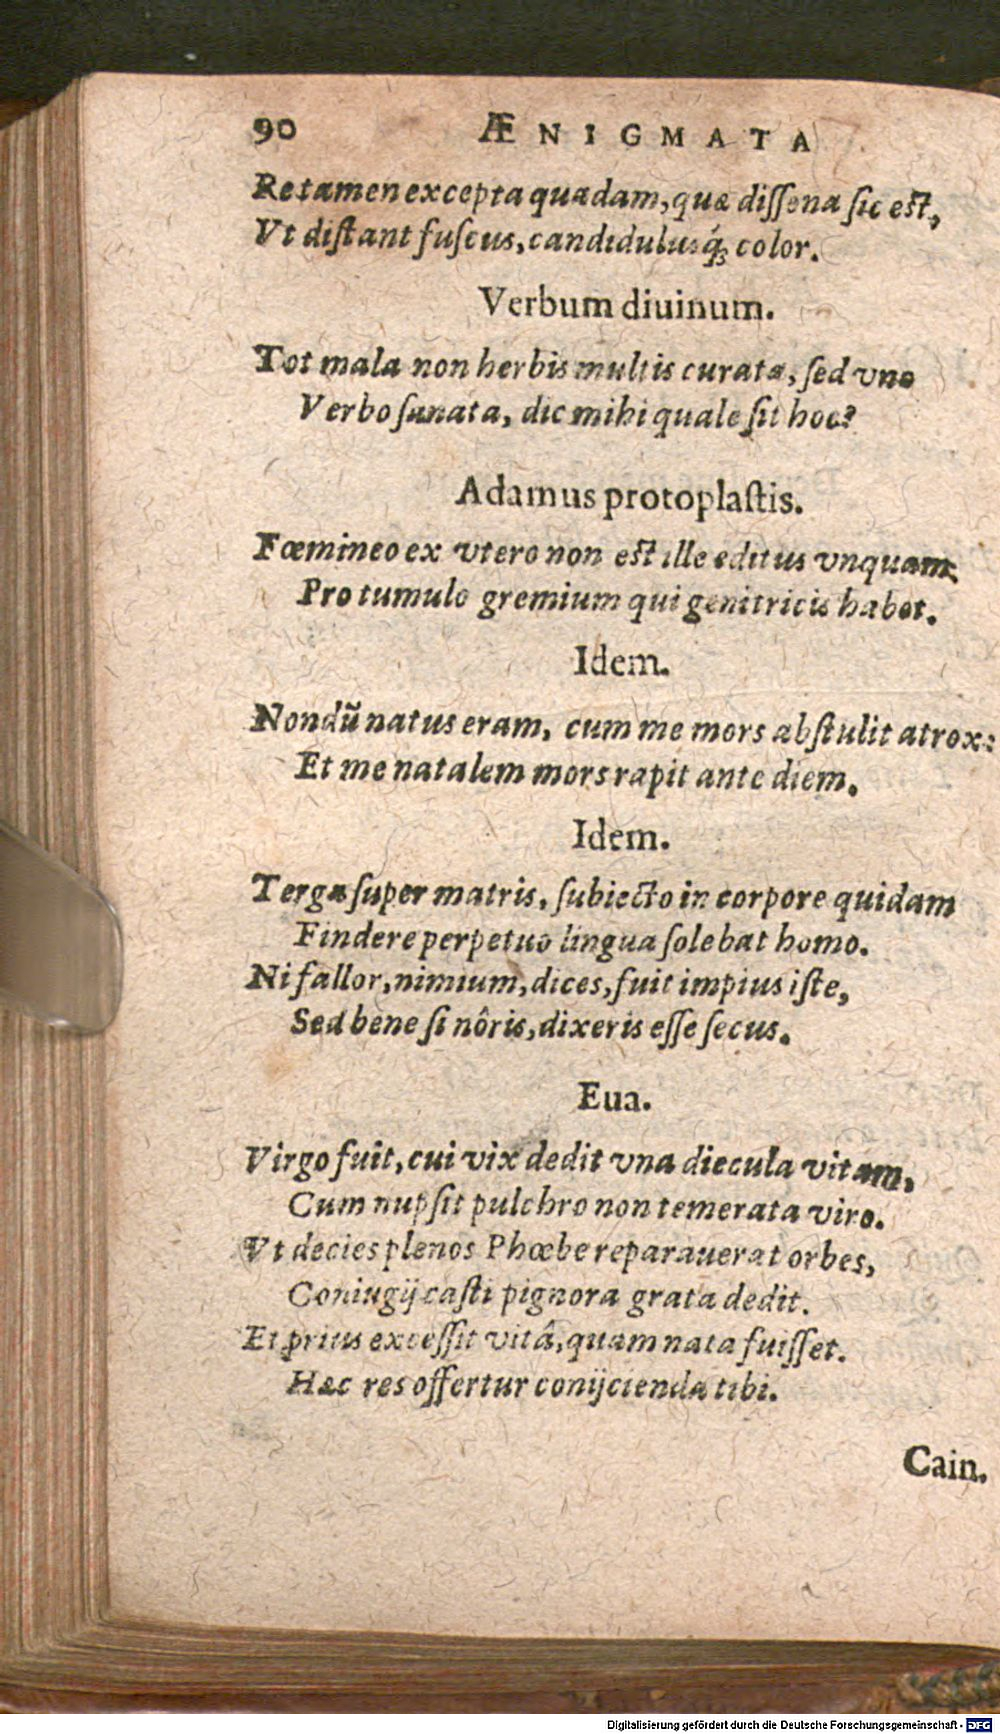 90 ÆNIGMATA
Re tamen excepta quadam, quæ dissona sic est,
Vt distant fuscus, candidulusq́; color.
Verbum diuinum.
Tot mala non herbis multis curata, sed vno
Verbo sanata, dic mihi quale sit hoc?
Adamus protoplastis.
Fœmineo ex vtero non est ille editus vnquam
Pro tumulo gremium qui genitricis habet.
Idem.
Nondũ natus eram, cum me mors abstulit atrox:
Et me natalem mors rapit ante diem.
Idem.
Terga super matris, subiecto in corpore quidam
Findere perpetuo lingua solebat homo.
Ni fallor, nimium, dices, fuit impius iste,
Sed bene si nôris, dixeris esse secus.
Eua.
Virgo fuit, cui vix dedit vna diecula vitam,
Cum nupsit pulchro non temerata viro.
Vt decies plenos Phœbe reparauerat orbes,
Coniugij casti pignora grata dedit.
Et prius excessit vitâ, quam nata fuisset.
Hæc res offertur conijcienda tibi.
Cain.
Digitalisierung gefördert durch die Deutsche Forschungsgemeinschaft - DFG